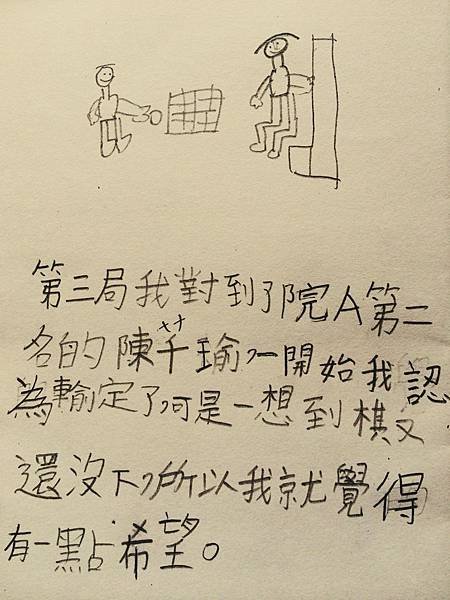 第三局我對到了院A第二
名的陳芊瑜,一開始我認
為輸定了,可是一想到棋又
還沒下,所以我就覺得
有一點希望。